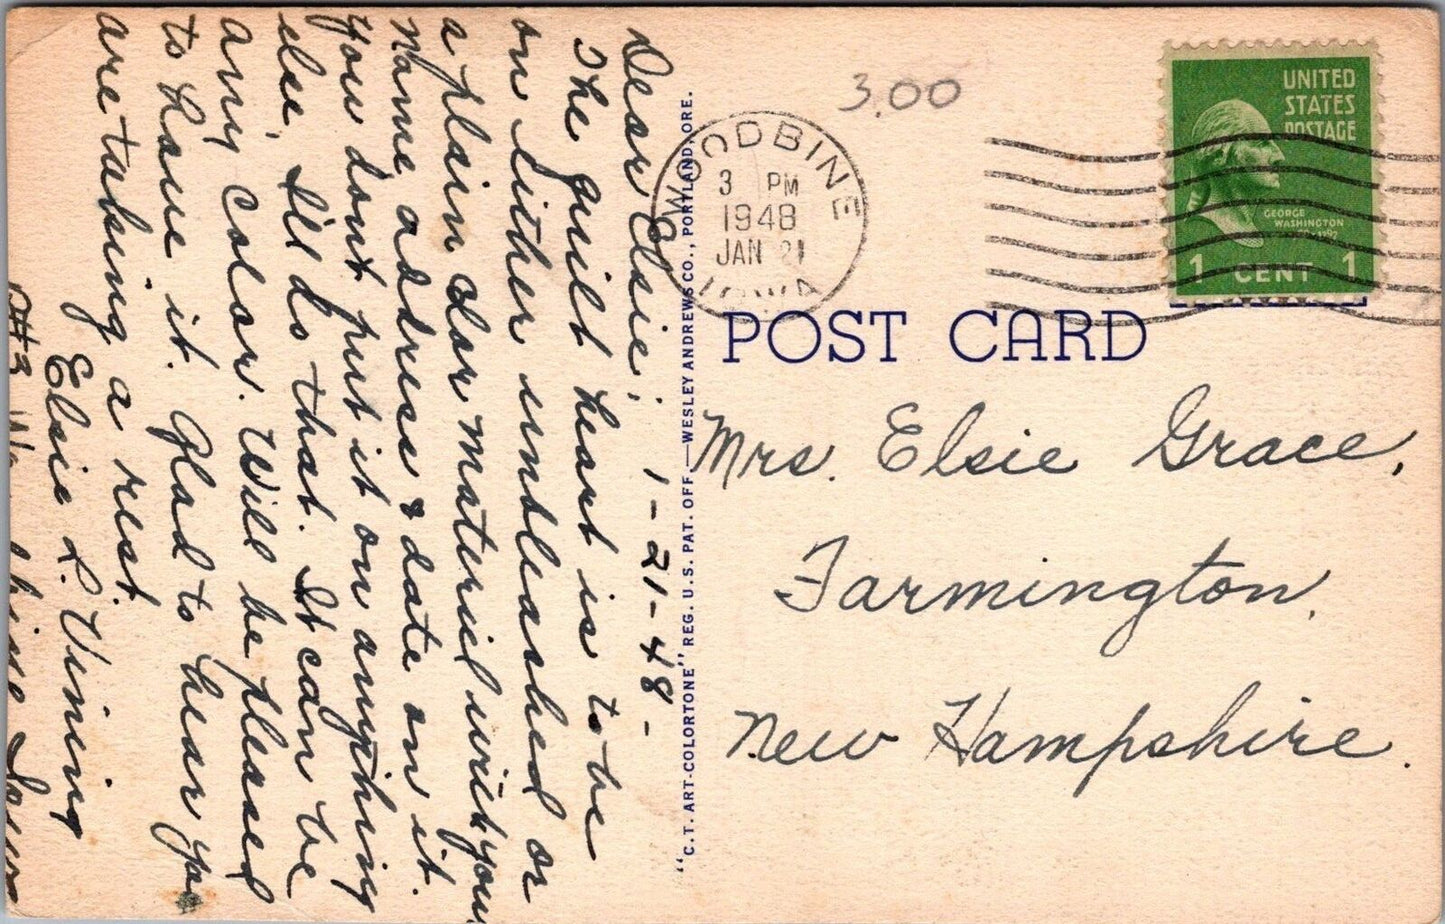 Dear Elsie; 1-21-48-
The quilt heart is to be
on either unbleached or
a plain clor material with your
Name address & date on it.
you dont put it on anything
else, I'll do that. It can be
any color. Will be pleased
to have it. Glad to hear you
are taking a rest.
Elsie L. Vining
R#3 Iowa
"C.T. ART-COLORTONE" REG. U.S. PAT. OFF.—WESLEY ANDREWS CO., PORTLAND, ORE.
3.00
WOODBINE
3 PM
1948
JAN 21
IOWA
UNITED
STATES
POSTAGE
GEORGE
WASHINGTON
1 CENT 1
POST CARD
Mrs. Elsie Grace,
Farmington,
New Hampshire.